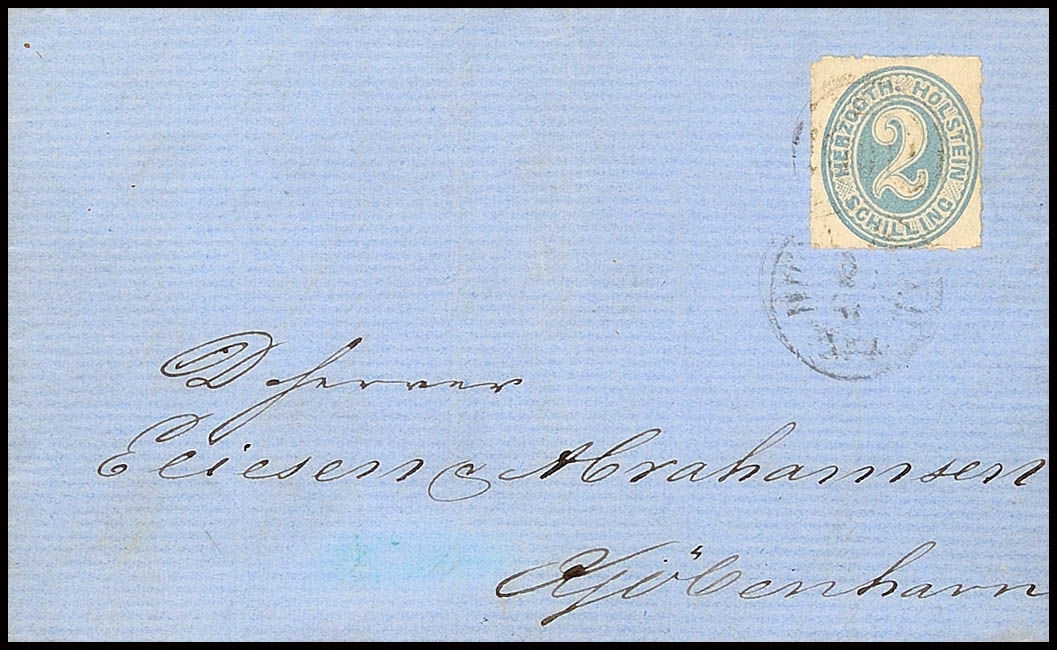 HERZOGTH. HOLSTEIN
2
SCHILLING
D herrer
Eliesen & Abrahamsen
Kjöbenhavn